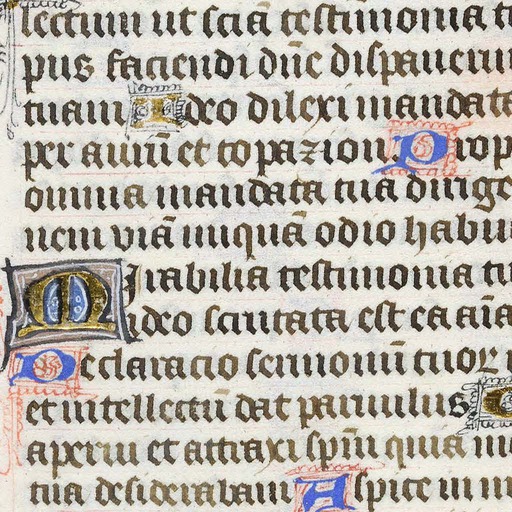 lectum ut sciā testimonia t
pus faciendi dn̄e dissipauerun
tuam Ideo dilexi mandata
per aurū et topazion Prop
omnia mandata tua dirige
nem viā iniquā odio habui
Mirabilia testimonia tu
ideo scrutata est ea aīa
Declaracio sermonū tuoꝝ
et intellectū dat paruulis
aperui et attraxi spm̄ quia m
tua desiderabam Aspice in m